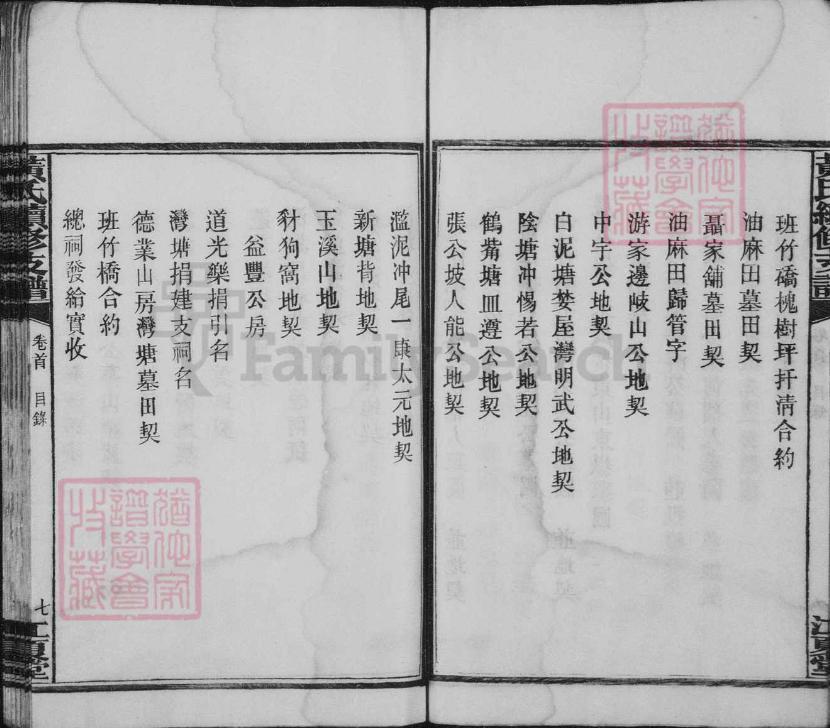 班竹磡槐樹坪扦清合約
油麻田墓田契
聶家舖墓田契
油麻田歸管字
游家邊岐山公地契
中字公地契
白泥塘婪屋灣明武公地契
陰塘冲惕若公地契
鶴觜塘皿遵公地契
張公坡人能公地契
濫泥冲尾一康太元地契
新塘背地契
玉溪山地契
豺狗窩地契
益豐公房
道光樂捐引名
灣塘捐建支祠名
德業山房灣塘墓田契
班竹橋合約
總祠發給實收
黃氏續修支譜
卷首 目錄
七
江夏堂
FamilySearch